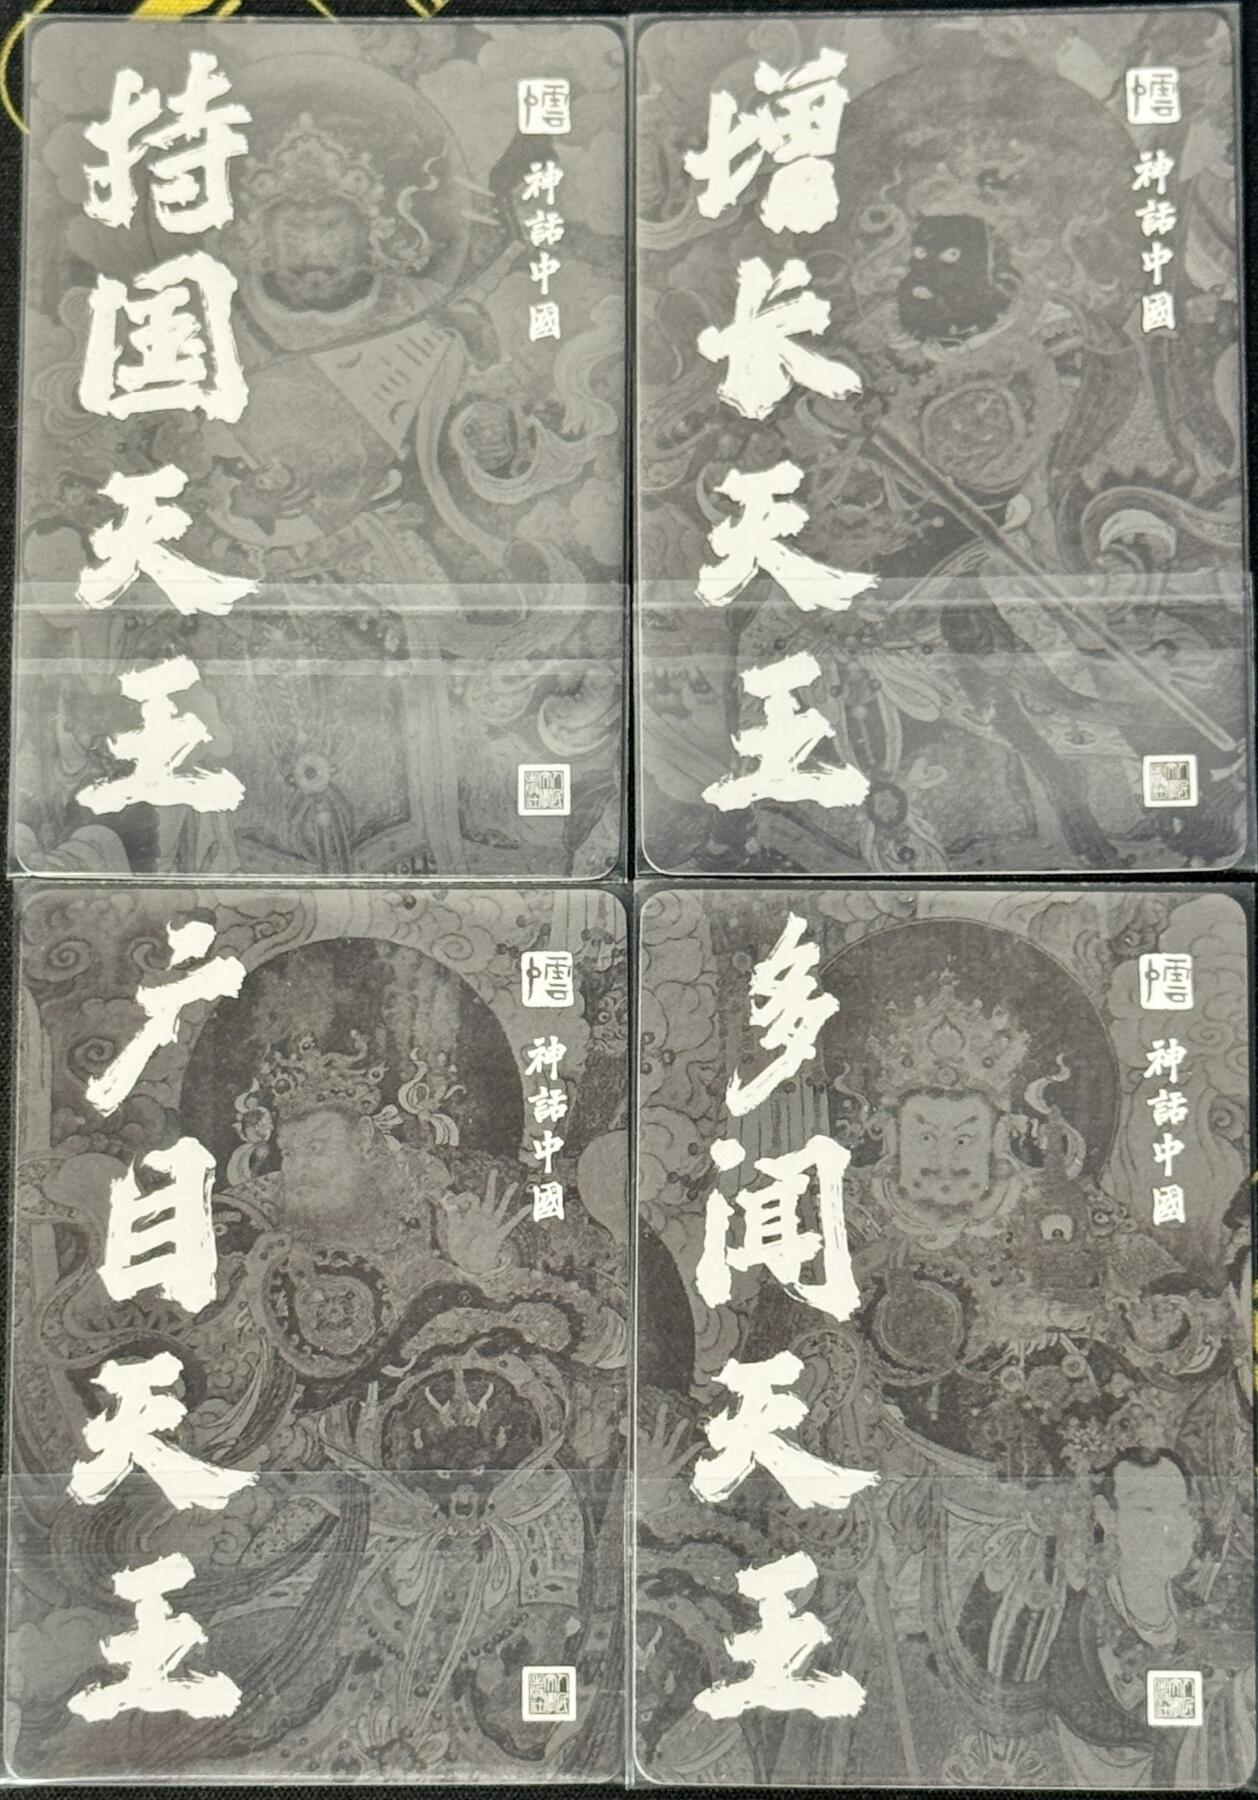 持国天王
神話中國
增长天王
神話中國
广目天王
神話中國
多闻天王
神話中國